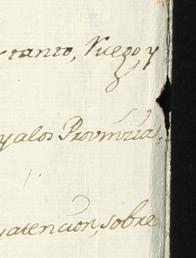 tanto, Ruego, y
yalos Provinzia,
yatencion, sobre